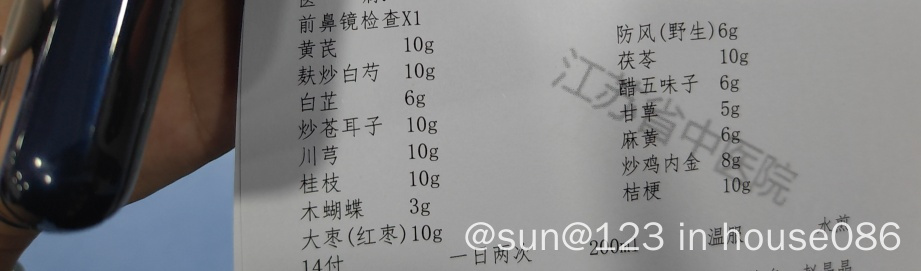 前鼻镜检查X1
黄芪 10g
麸炒白芍 10g
白芷 6g
炒苍耳子 10g
川芎 10g
桂枝 10g
木蝴蝶 3g
大枣(红枣)10g
14付
防风(野生)6g
茯苓 10g
醋五味子 6g
甘草 5g
麻黄 6g
炒鸡内金 8g
桔梗 10g
一日两次 200ml 温服 水煎
江苏省中医院
@sun@123 in house086